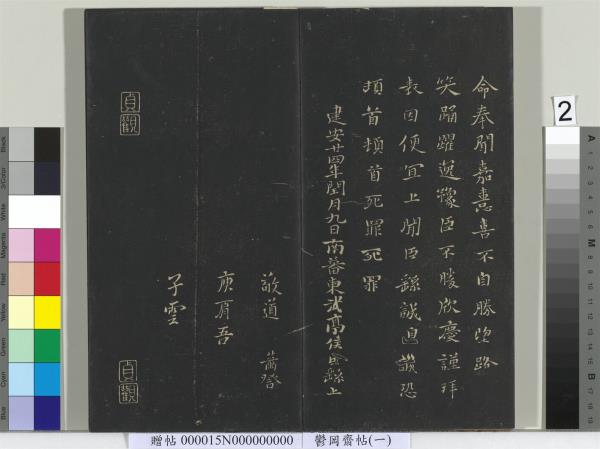 命奉聞嘉憙喜不自勝望路
笑踊躍逸豫臣不勝欣慶謹拜
表因便宜上聞臣繇誠惶誠恐
頓首頓首死罪死罪
建安廿四年閏月九日南蕃東武亭侯臣繇上
敬道 蕭登
庾肩吾
子雲
貞觀
貞觀
2
贈帖 000015N000000000 鬱岡齋帖(一)
Black
3/Color
White
Magenta
Red
Yellow
Green
Cyan
Blue
A
M
B